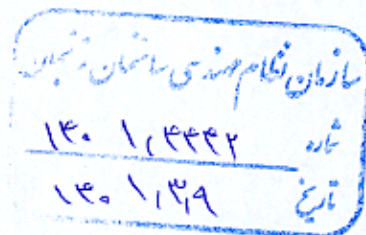 سازمان نظام مهندسی ساختمان زنجان
شماره ۱۴۰۱,۴۴۴۲
تاریخ ۱۴۰۱,۳,۹